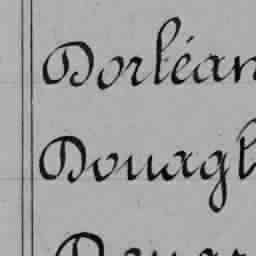 Dorléan
Douagh